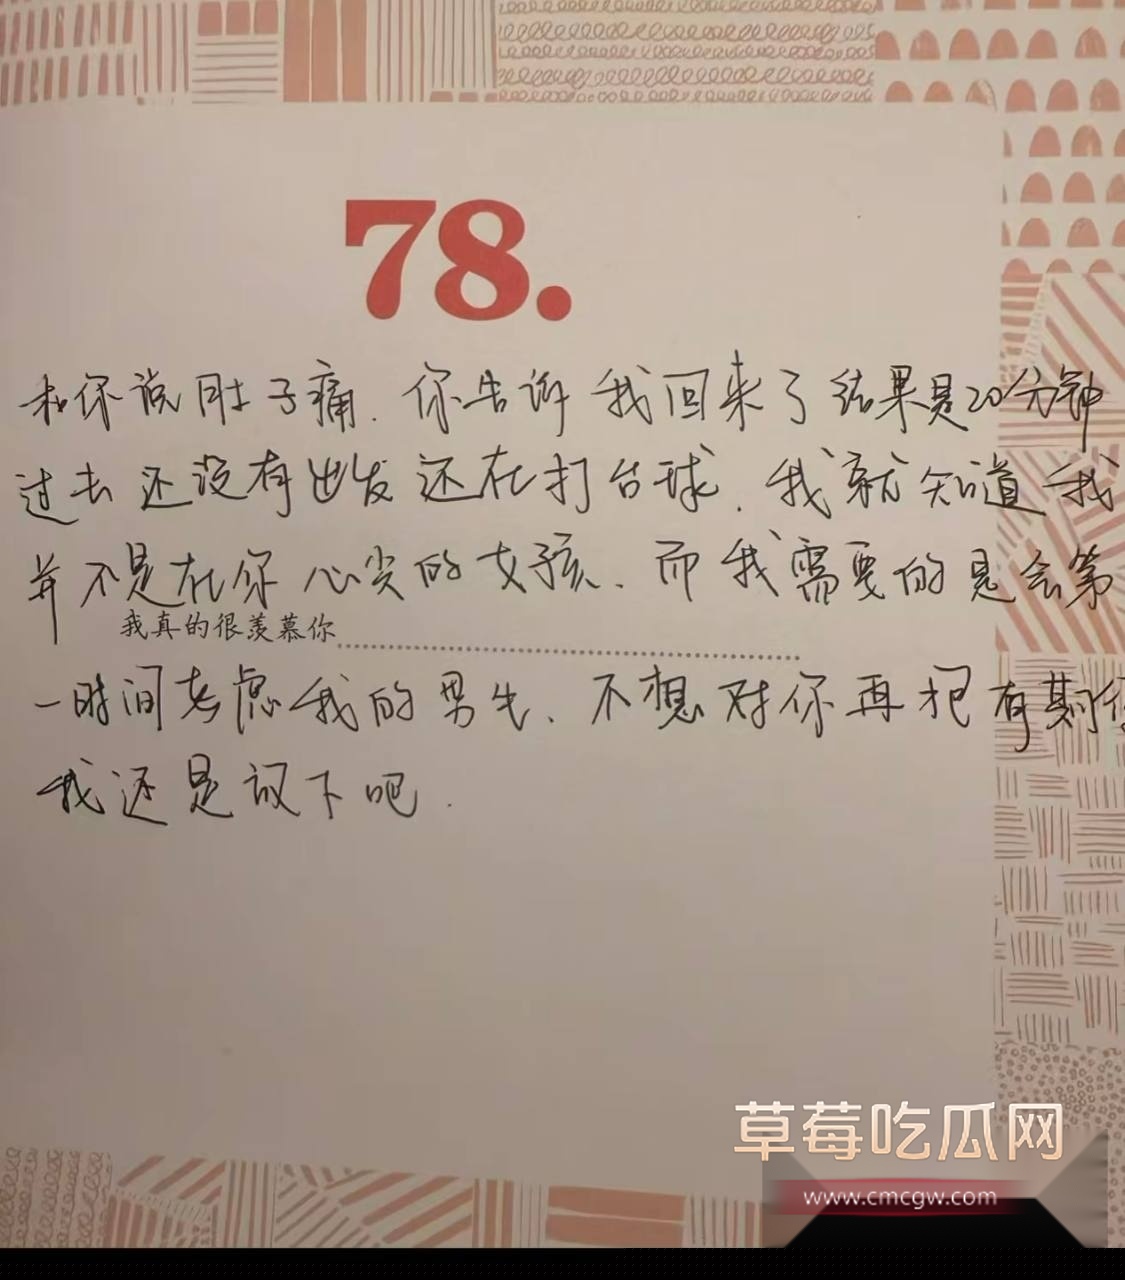 78.
和你说肚子痛.你告诉我回来了结果是20分钟
过去还没有出发还在打台球.我就知道我
并不是在你心尖的女孩.而我需要的是会第
我真的很羡慕你
一时间考虑我的男生.不想对你再抱有期待
我还是放下吧.
草莓吃瓜网
www.cmcgw.com